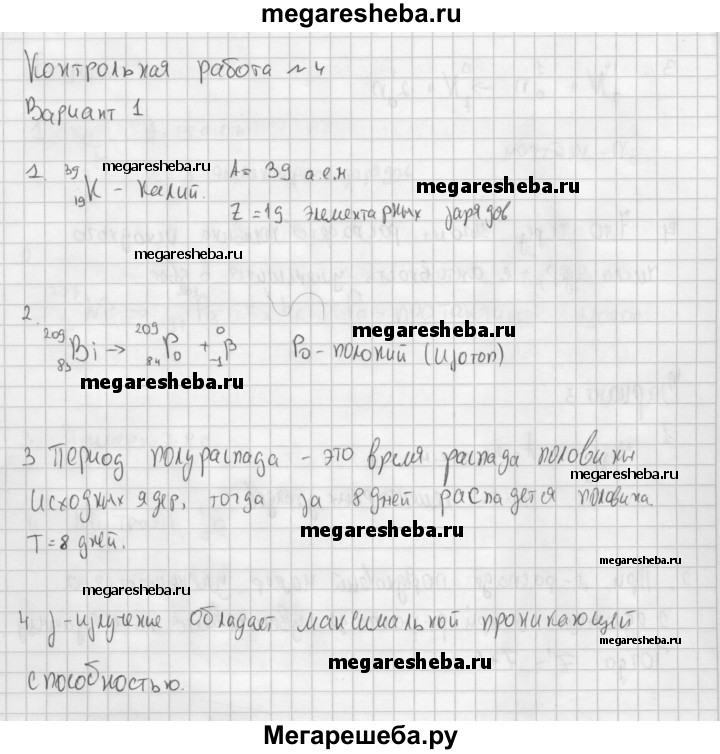 megaresheba.ru
Контрольная работа №4
Вариант 1
1. ³⁹₁₉K – Калий. A = 39 а.е.м
megaresheba.ru
megaresheba.ru
Z = 19 элементарных зарядов
megaresheba.ru
2.
²⁰⁹₈₃Bi → ²⁰⁹₈₄Po + ⁰₋₁β Po – полоний (изотоп)
megaresheba.ru
megaresheba.ru
3 Период полураспада – это время распада половины
megaresheba.ru
исходных ядер, тогда за 8 дней распадется половина.
T = 8 дней.
megaresheba.ru
megaresheba.ru
4. γ-излучение обладает максимальной проникающей
megaresheba.ru
megaresheba.ru
способностью.
Мегарешеба.ру